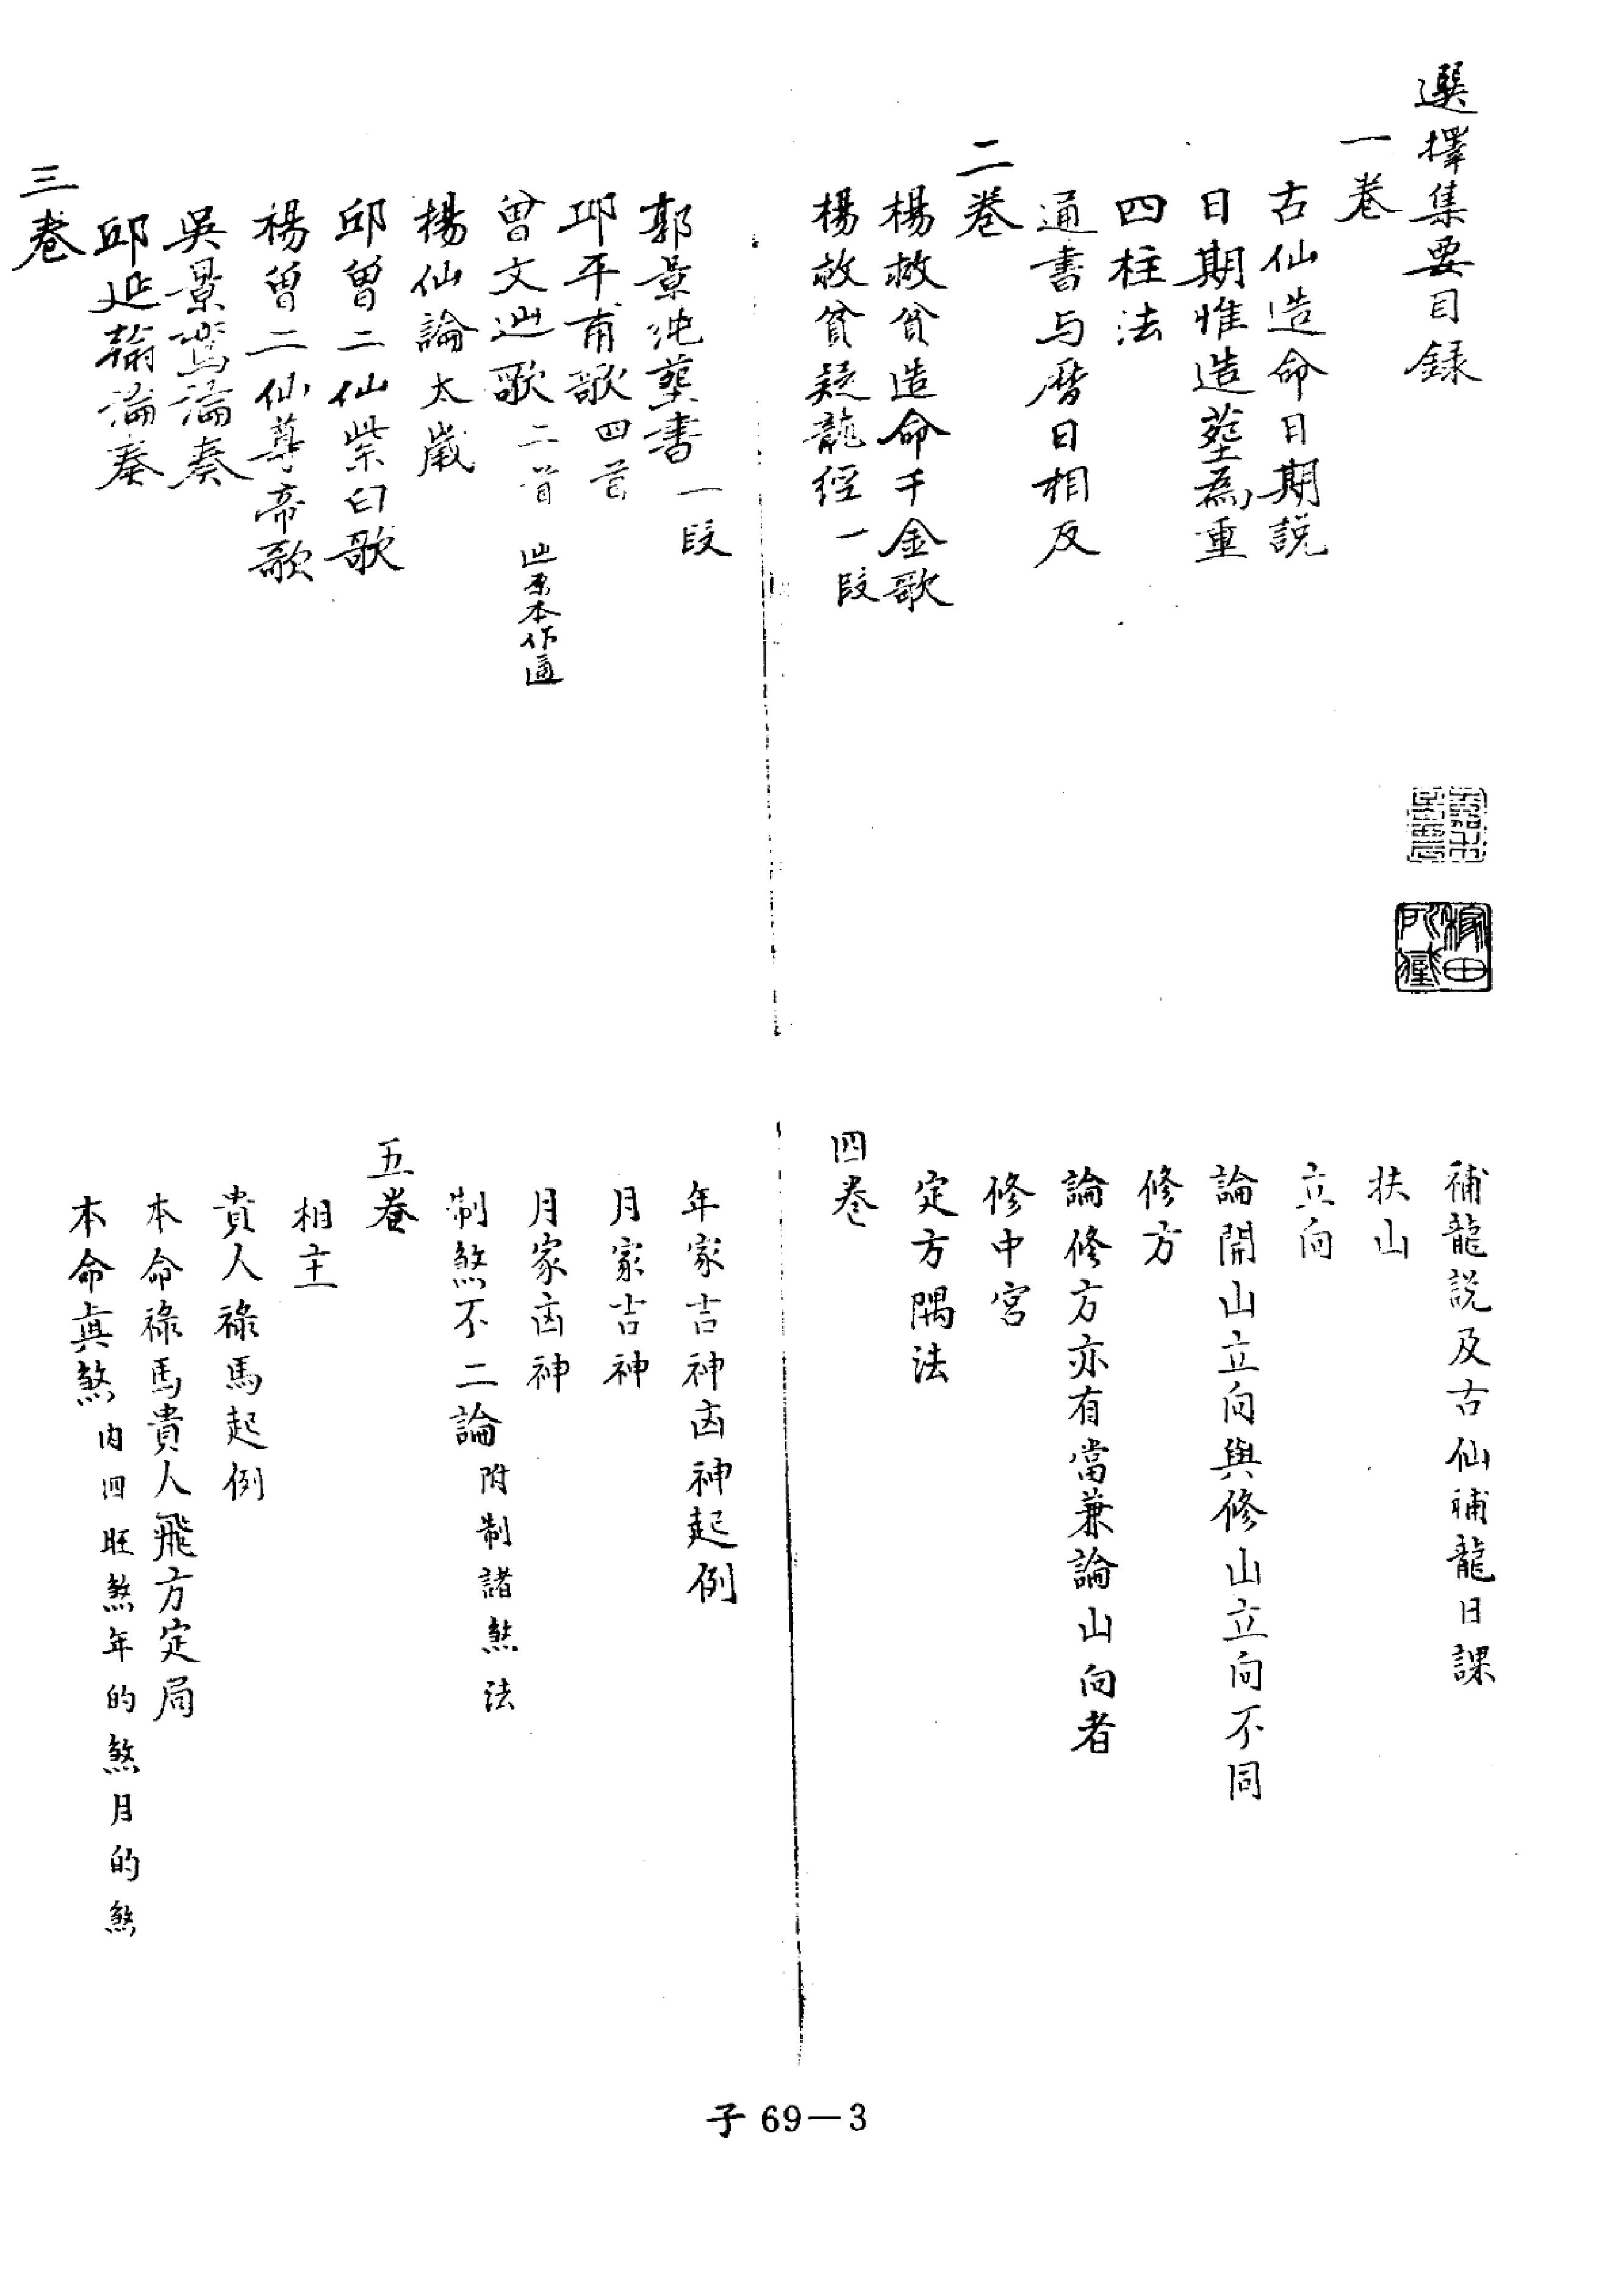 選擇集要目録
一卷
古仙造命日期説
日期惟造塟為重
四柱法
通書与暦日相反
二卷
楊救貧造命千金歌
楊救貧疑龍經一段
郭景純塟書一段
邱平甫歌四首
曾文辿歌二首 辿原本作遄
楊仙論太歲
邱曾二仙紫白歌
楊曾二仙尊帝歌
吳景鸞論奏
邱延翰論奏
三卷
補龍説及古仙補龍日課
扶山
立向
論開山立向與修山立向不同
修方
論修方亦有當兼論山向者
修中宮
定方隅法
四卷
年家吉神凶神起例
月家吉神
月家凶神
制煞不二論 附制諸煞法
五卷
相主
貴人祿馬起例
本命祿馬貴人飛方定局
本命眞煞 内四旺煞年的煞月的煞
子 69—3